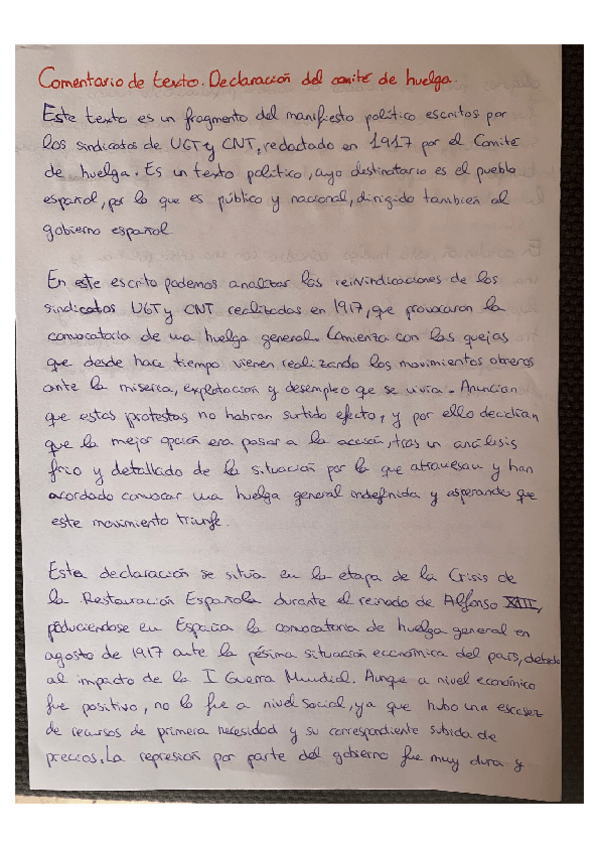 Comentario de texto. Declaración del comité de huelga.
Este texto es un fragmento del manifiesto político escritos por
los sindicatos de UGT y CNT, redactado en 1917 por el Comité
de huelga. Es un texto político, cuyo destinatario es el pueblo
español, por lo que es público y nacional, dirigido también al
gobierno español
En este escrito podemos analizar las reinvindicaciones de los
sindicatos UGT y CNT realizadas en 1917, que provocaron la
convocatoria de una huelga general. Comienza con las quejas
que desde hace tiempo vienen realizando los movimientos obreros
ante la miseria, explotación y desempleo que se vivía. Anuncian
que estas protestas no habran surtido efecto, y por ello decidían
que la mejor opción era pasar a la acción, tras un análisis
frio y detallado de la situación por la que atraviesan y han
acordado convocar una huelga general indefinida y esperando que
este movimiento triunfe.
Esta declaración se sitúa en la etapa de la Crisis de
la Restauración Española durante el reinado de Alfonso XIII,
produciendose en España la convocatoria de huelga general en
agosto de 1917 ante la pésima situación económica del país, debido
al impacto de la I Guerra Mundial. Aunque a nivel económico
fue positivo, no lo fue a nivel social, ya que hubo una escasez
de recursos de primera necesidad y su correspondiente subida de
precios. La represión por parte del gobierno fue muy dura y